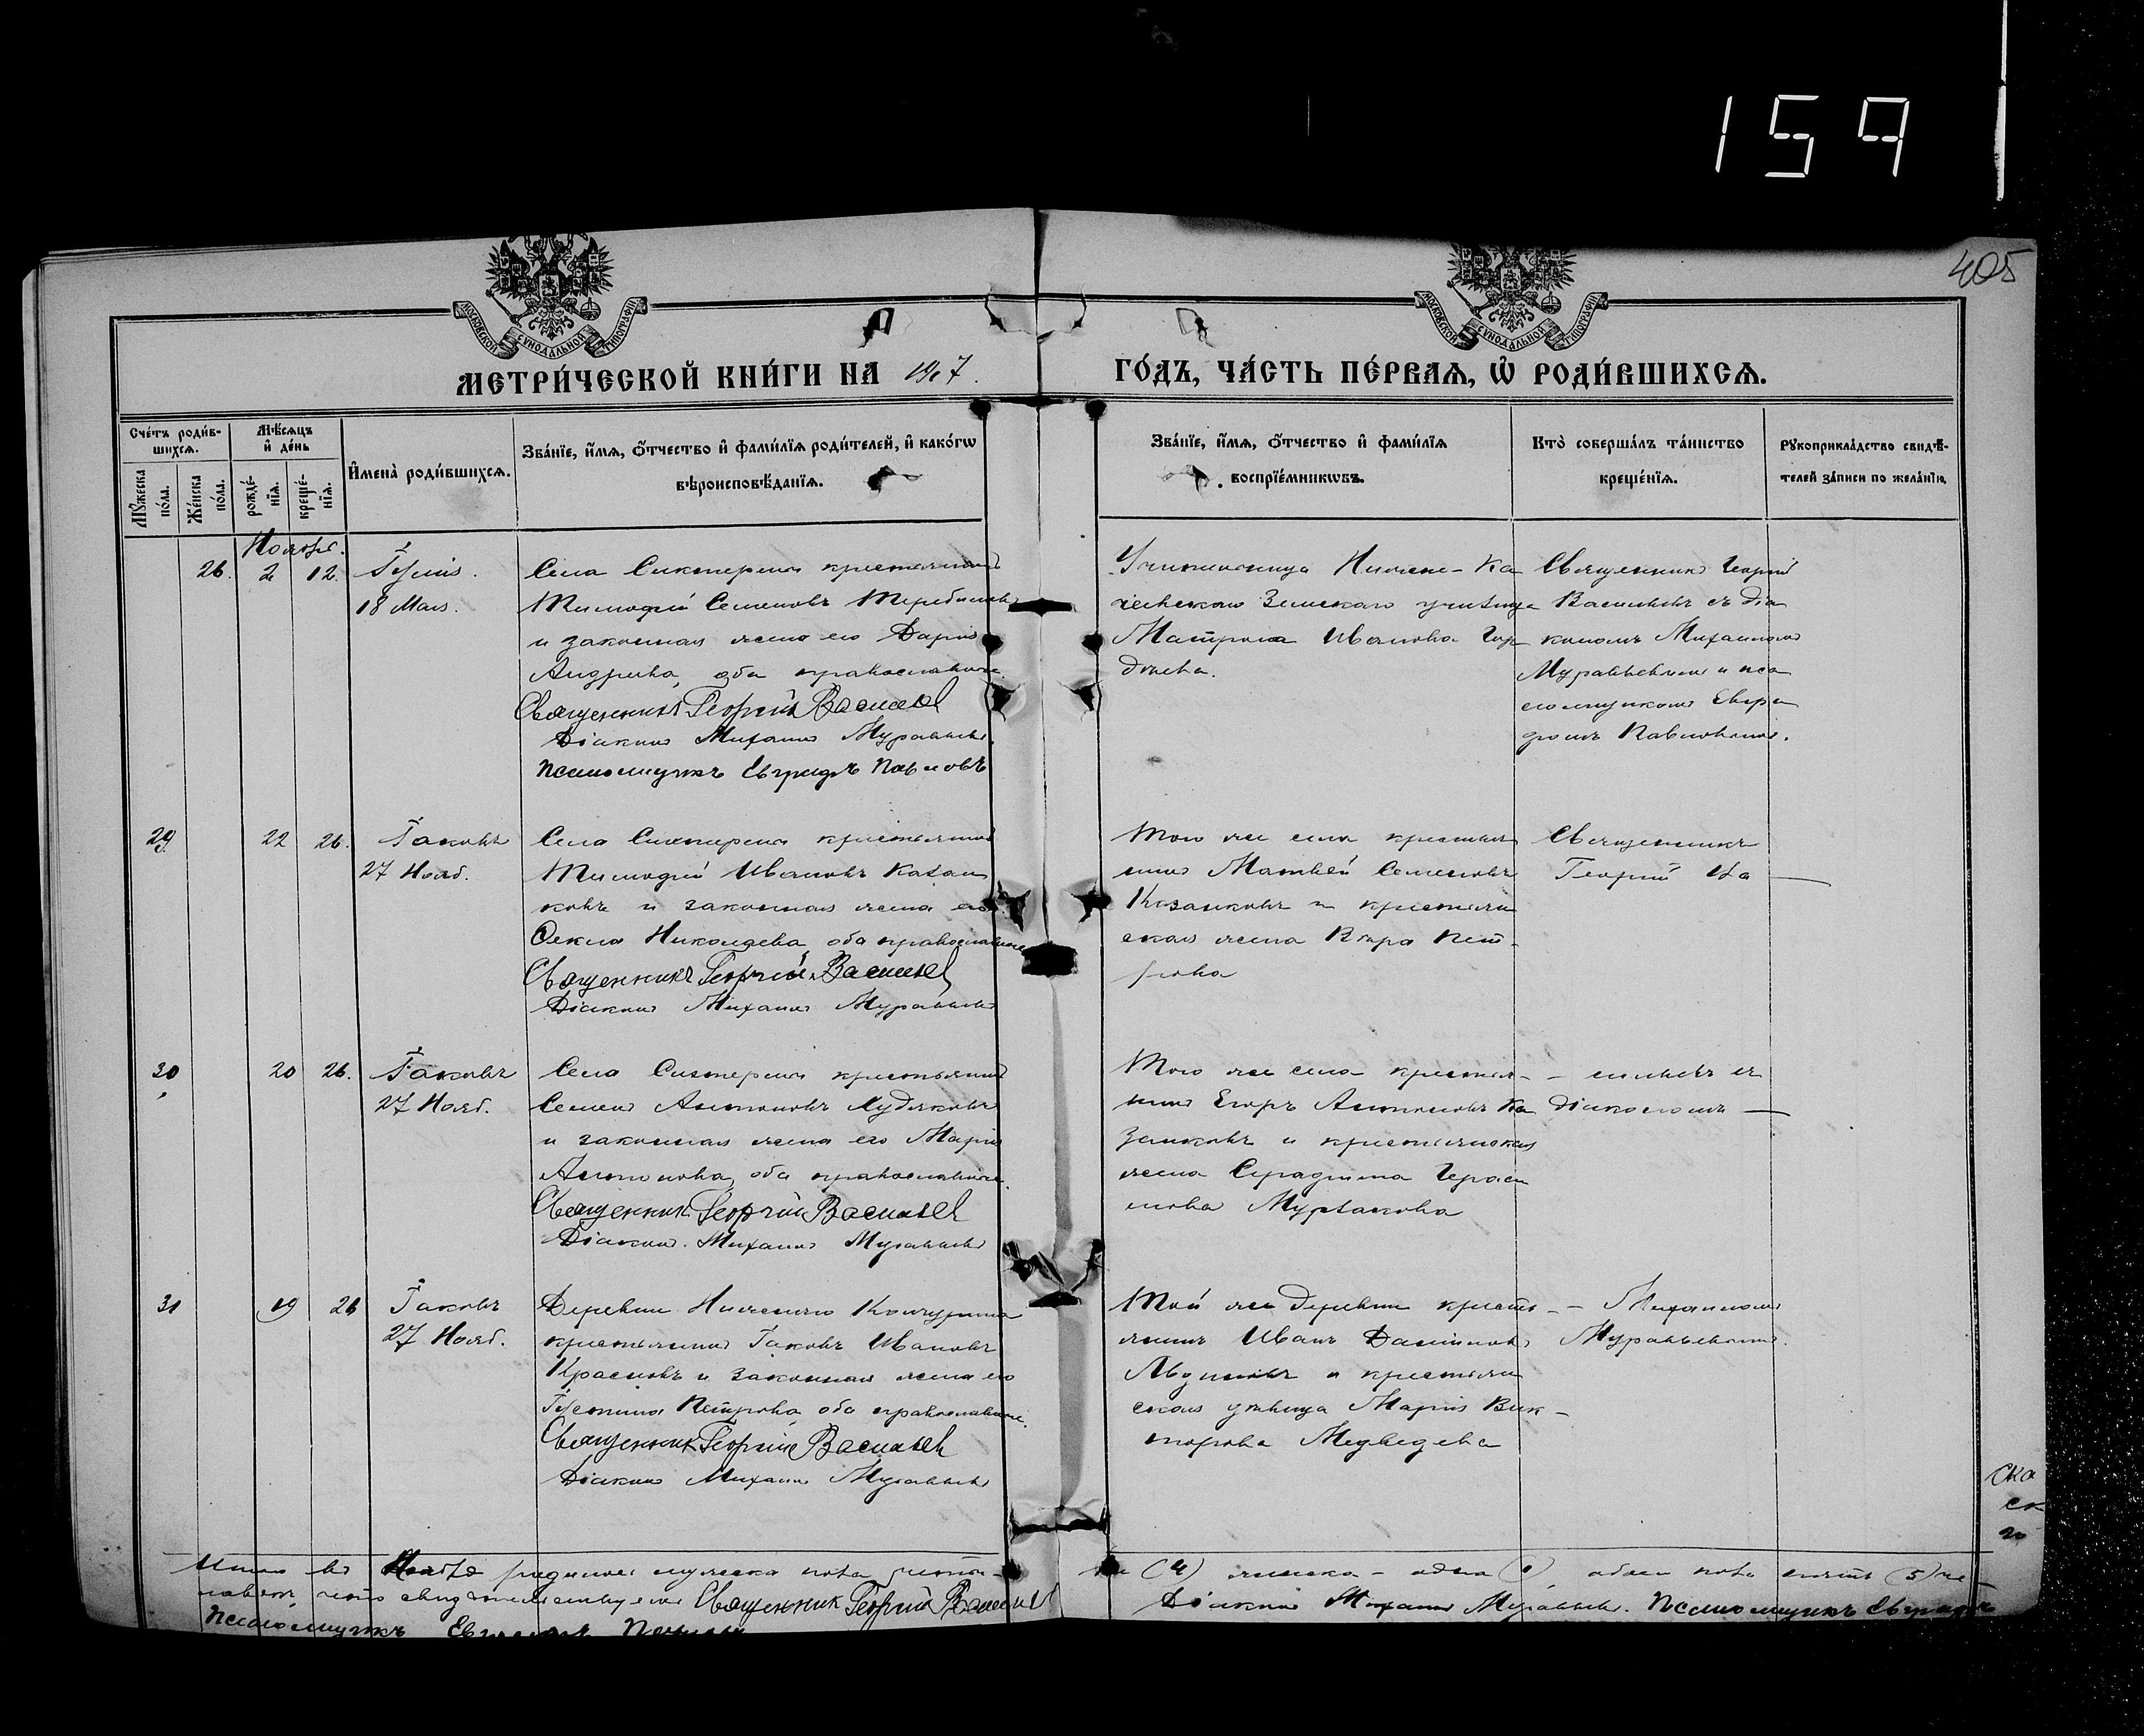 159
405
МОСКОВСКОЙ СѴНОДАЛЬНОЙ ТИПОГРАФІИ
МОСКОВСКОЙ СѴНОДАЛЬНОЙ ТИПОГРАФІИ
МЕТРИ́ЧЕСКОЙ КНИ́ГИ НА 1907.
ГО́ДЪ, ЧА́СТЬ ПЕ́РВАѦ, Ѡ҆ РОДИ́ВШИХСѦ.
Сче́тъ роди́в-
шихсѧ.
Мꙋ́жеска
по́ла.
Же́нска
по́ла.
Мѣ́сѧцъ
и҆ де́нь
рожде́-
нїѧ.
креще́-
нїѧ.
И҆мена̀ роди́вшихсѧ.
Зва́нїе, и҆́мѧ, ѻ҆́тчество и҆ фами́лїѧ роди́телей, и҆ како́гѡ
вѣроисповѣ́данїѧ.
Зва́нїе, и҆́мѧ, ѻ҆́тчество и҆ фами́лїѧ
воспрїе́мникѡвъ.
Кто̀ соверша́лъ та́инство
креще́нїѧ.
Рꙋкоприкла́дство свидѣ́-
телей за́писи по жела́нїю.
Ноября.
26. 2 12.
18 Мая.
Села крестьянинъ
Тимофей Семеновъ
и законная жена его Дарія
Андреева, оба православные.
Священникъ Георгій Васильев
Діаконъ Михаилъ Муравьевъ.
Псаломщикъ Евграфъ Павловъ
Учительница Нижне-Ка
земскаго училища
Матрона Иванова
Священникъ Георгій
Васильевъ съ діа
кономъ Михаиломъ
Муравьевымъ и пса
ломщикомъ Евгра
фомъ Павловымъ.
29. 22 26. Іаковъ
27 Нояб.
Села крестьянинъ
Тимофей Ивановъ Казан
ковъ и законная жена его
Ѳекла Николаева, оба православные
Священникъ Георгій Васильев
Діаконъ Михаилъ Муравьевъ
Того же села крестьян
инъ Матвей Семеновъ
Казанковъ и крестьян
ская жена Вѣра Пет-
рова
Священникъ
Георгій Ва
30 20 26. Іаковъ
27 Нояб.
Села крестьянинъ
Семенъ Антоновъ Худяковъ
и законная жена его Марія
Антонова, оба православные.
Священникъ Георгій Васильев
Діаконъ Михаилъ Муравьевъ
Того же села крестьян-
инъ Егоръ Антоновъ Ка
занковъ и крестьянская
жена Серафима Гераси
мова
- сильевъ съ
діакономъ —
31 19 26 Іаковъ
27 Нояб.
Деревни Нижняго
крестьянинъ Іаковъ Ивановъ
Красновъ и законная жена его
Іустина Петрова, оба православные.
Священникъ Георгій Васильев
Діаконъ Михаилъ Муравьевъ
Той же деревни кресть-
янинъ Иванъ Даниловъ
и крестьян
ская дѣвица Марія Вик-
торова Медведева
- Михаиломъ
Муравьевымъ.
Итого въ Ноябрѣ родилось мужеска пола четы-
ре (4) женска - одна (1), обоего пола пять (5) че-
ловѣкъ, что свидѣтельствуемъ Священник Георгій Васильев
Діаконъ Михаилъ Муравьевъ. Псаломщикъ Евграфъ
Псаломщикъ Евграфъ